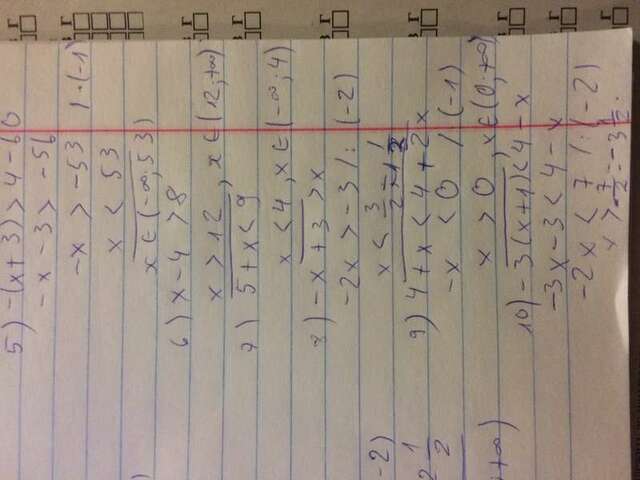 5) -(x+3) > 4-60
-x -3 > -56
-x > -53 | ·(-1)
x < 53
x ∈ (-∞; 53)
6) x-4 > 8
x > 12, x ∈ (12; +∞)
7) 5+x < 9
x < 4, x ∈ (-∞; 4)
8) -x +3 > x
-2x > -3 /: (-2)
x < 3/2 = 1 1/2
9) 4+x < 4+2x
-x < 0 /: (-1)
x > 0, x ∈ (0; +∞)
10) -3(x+1) < 4-x
-3x-3 < 4-x
-2x < 7 /: (-2)
x > -7/2 = -3 1/2.
)
-2)
2 1/2
; +∞)
в г
г
в г
в г
в г